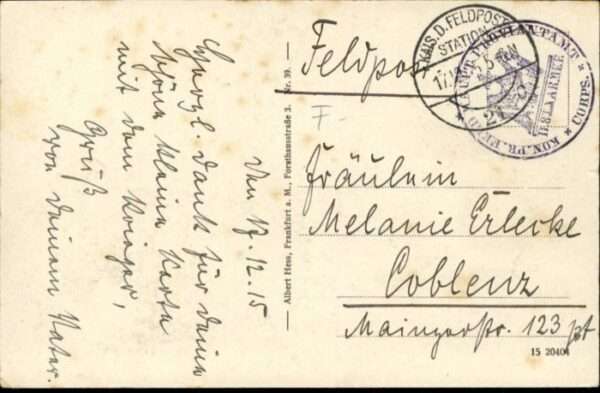 Feldpost
KAIS. D. FELDPOST
STATION
KON. PR.
CORPS.
F-
Fräulein
Melanie Erlecke
Coblenz
Mainzerstr. 123 pt.
15 20404
Albert Hess, Frankfurt a. M., Forsthausstraße 3. Nr. 39.
Den 17.12.15
Herzl. Dank für deine
schöne kleine Karte
mit dem Krieger,
Gruß
von deinem Vater.